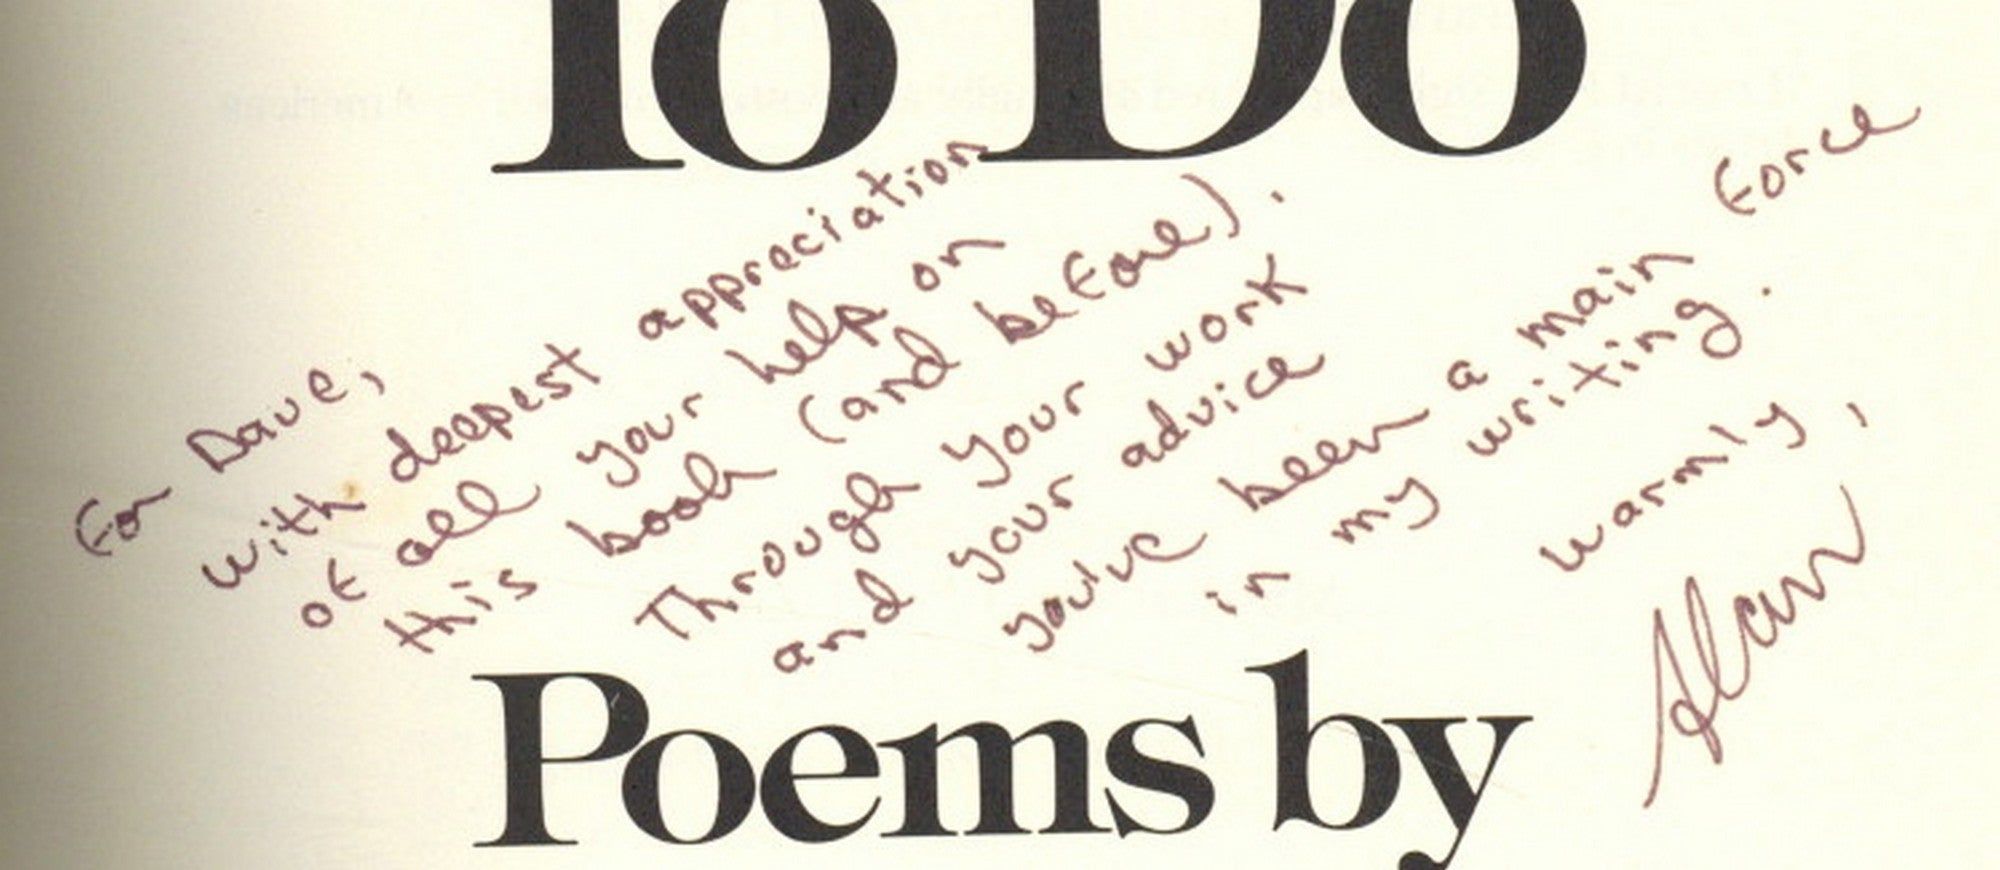 To Do
For Dave,
with deepest appreciation
of all your help on
this book (and before).
Through your work
and your advice
you've been a main force
in my writing.
Warmly,
Alan
Poems by